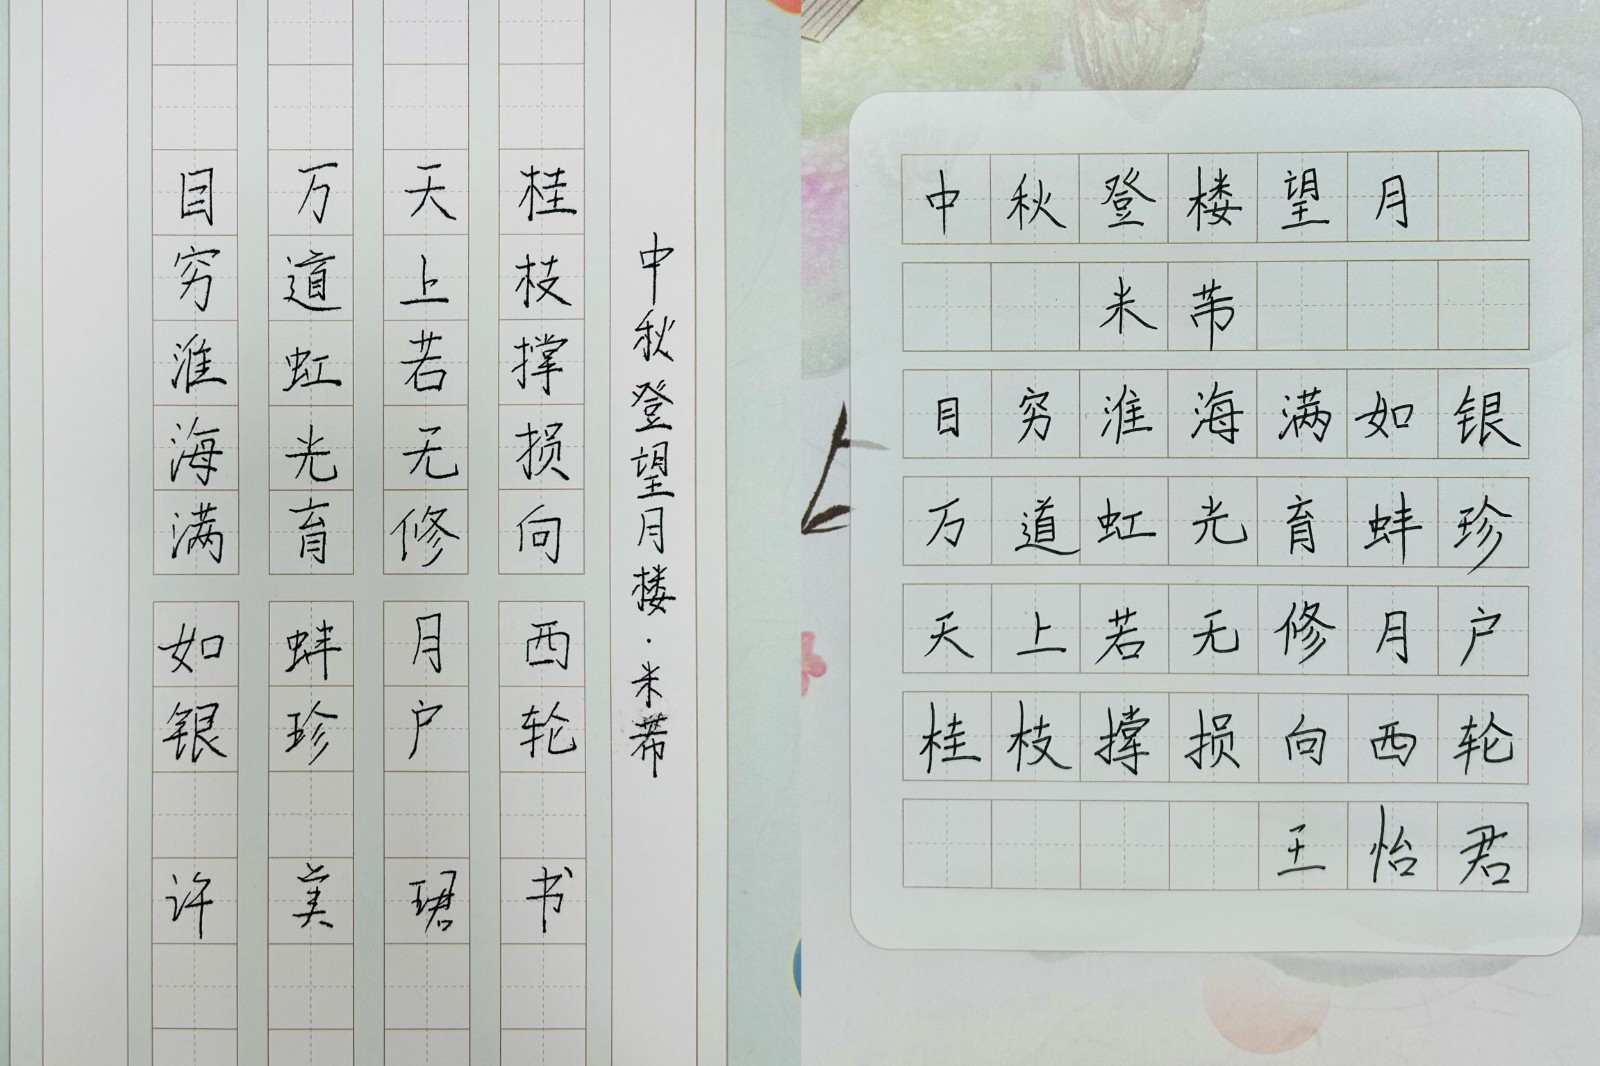 中秋登望月楼·米芾
目穷淮海满如银
万道虹光育蚌珍
天上若无修月户
桂枝撑损向西轮
许美珺书
中秋登楼望月
米芾
目穷淮海满如银
万道虹光育蚌珍
天上若无修月户
桂枝撑损向西轮
王怡君